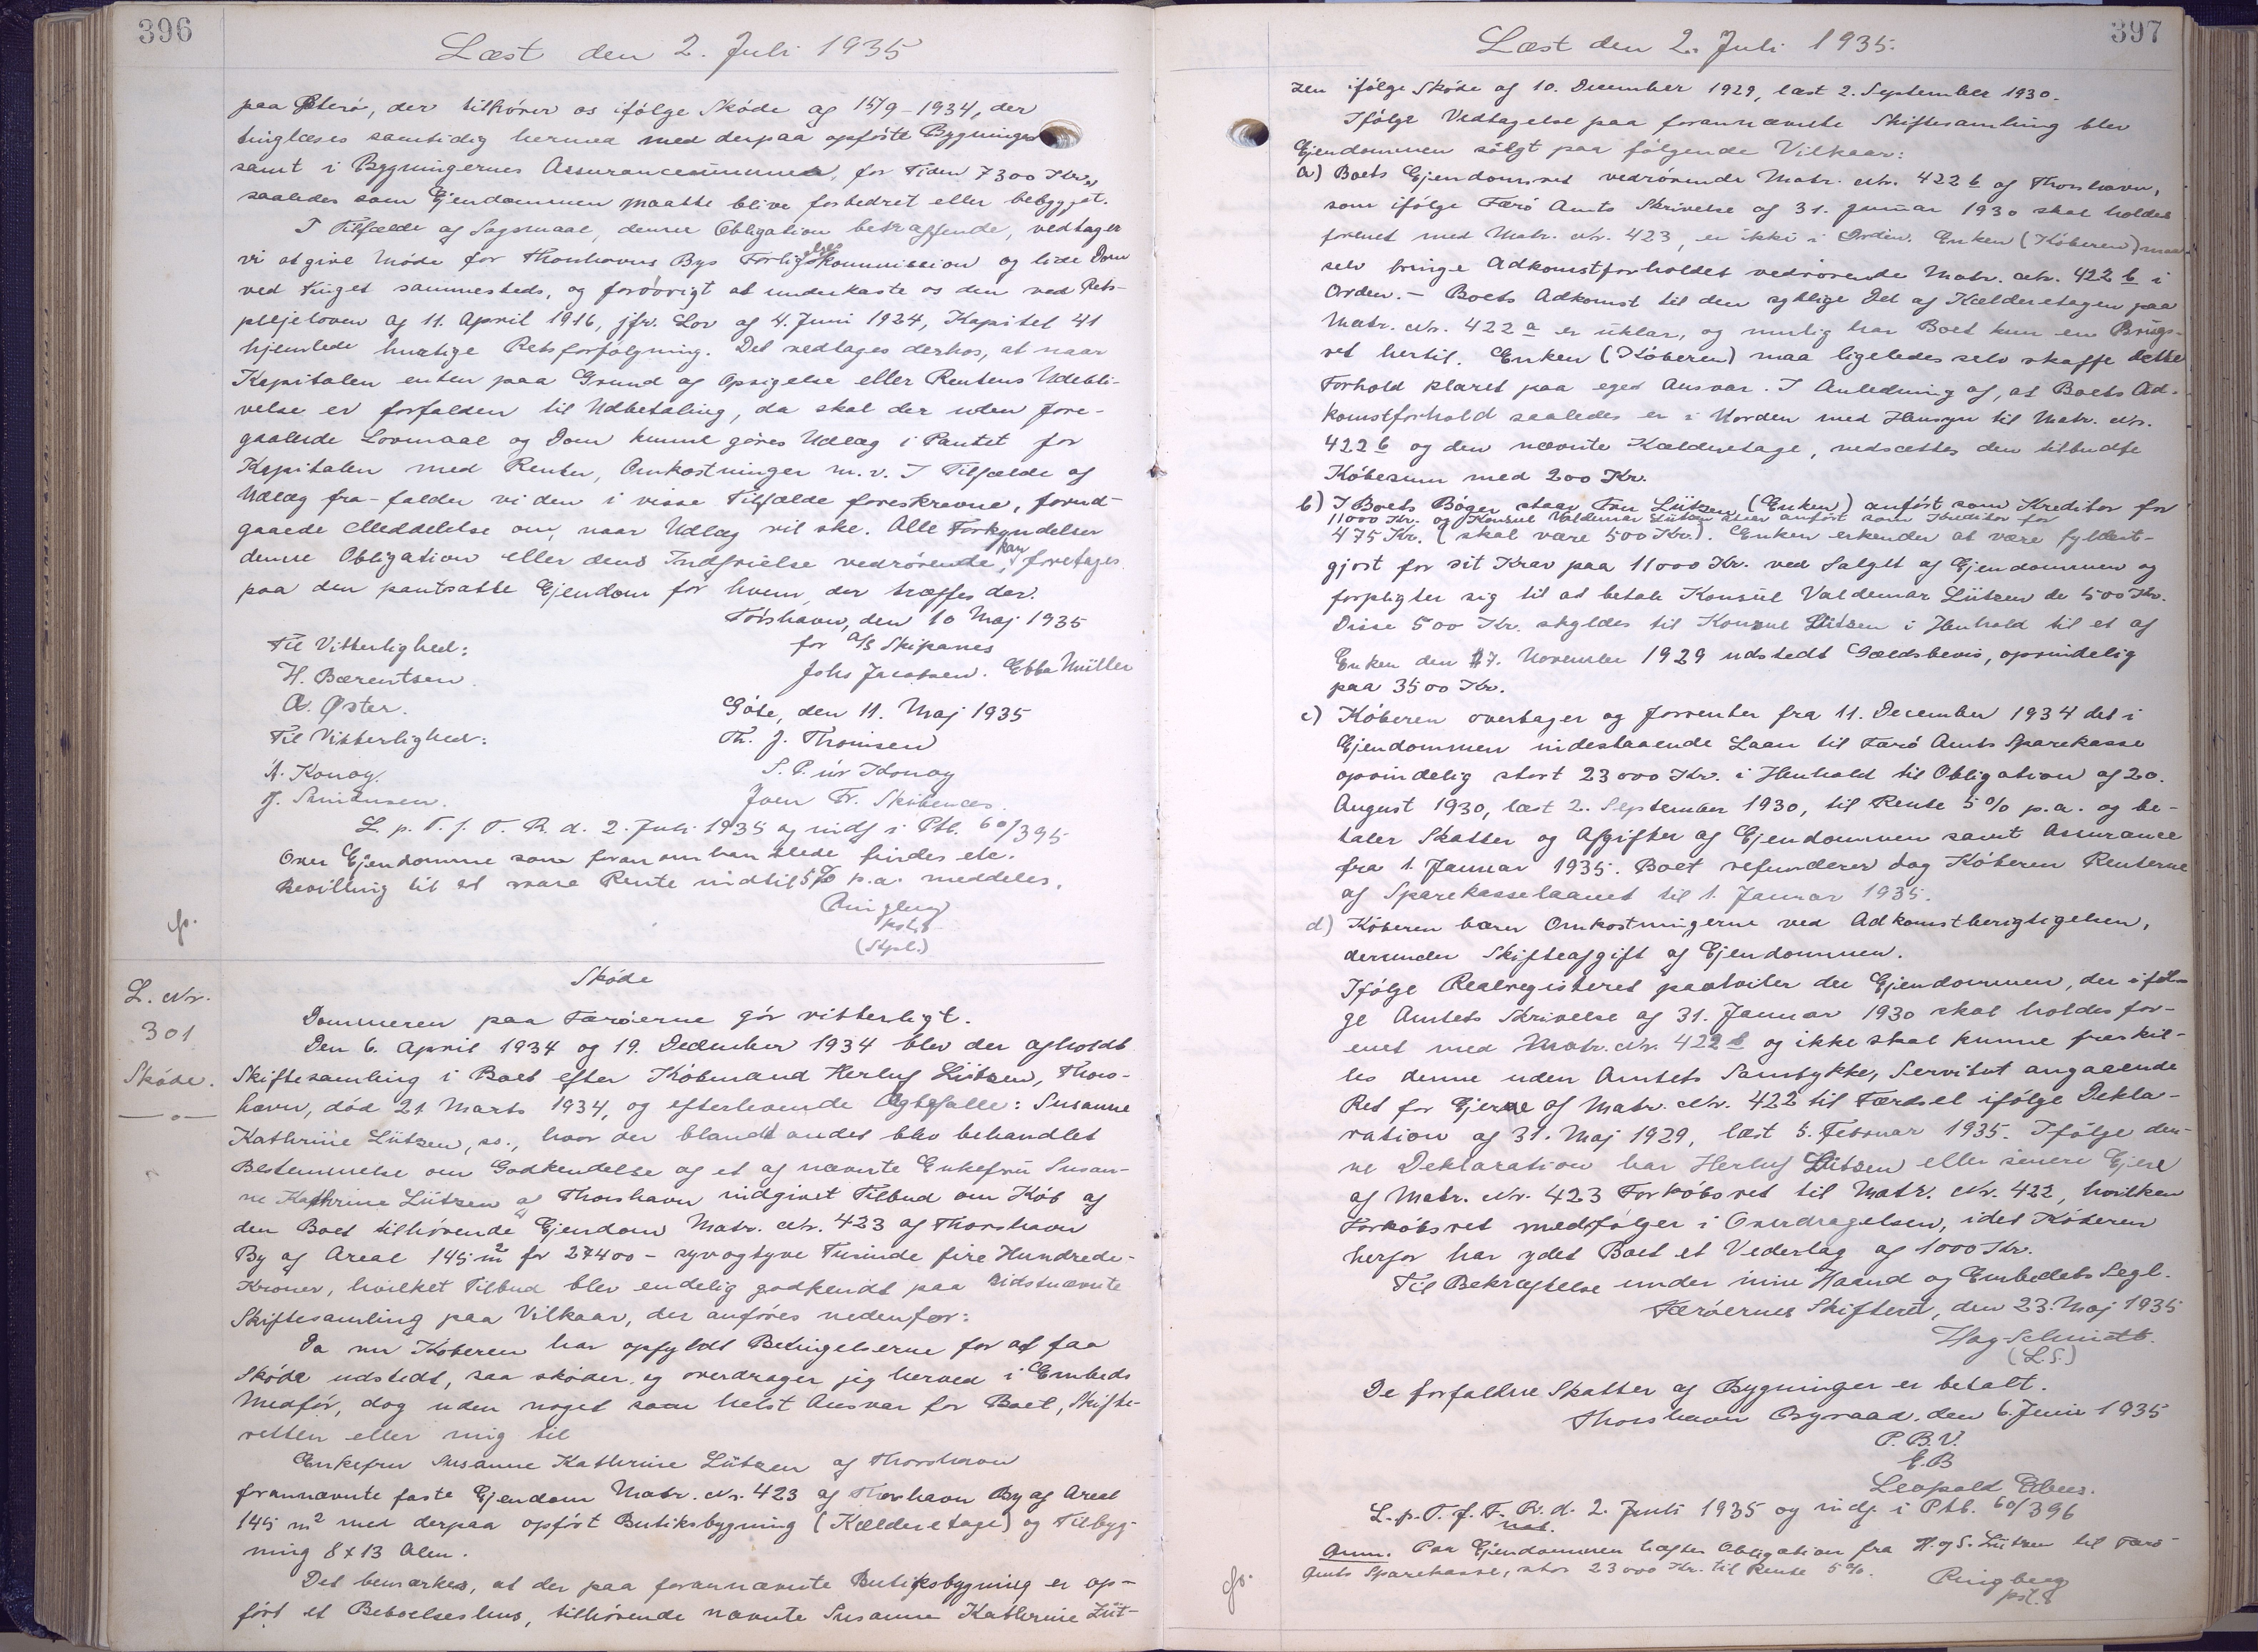 396
Læst den 2. Juli 1935
paa Østerø, der tilhører os ifølge Skøde af 15/9-1934, der
tinglæses samtidig hermed med derpaa opførte Bygninger
samt i Bygningernes Assurancesummer, for Tiden 7300 Kr.,
saaledes som Ejendommen maatte blive forbedret eller bebygget.
I Tilfælde af Søgsmaal, denne Obligation betræffende, vedtager
vi at give Møde for Thorshavns Bys Forligelseskommission og lide Dom
ved Tinget sammesteds, og forøvrigt at underkaste os den ved Rets-
plejeloven af 11. April 1916, jfr. Lov af 4. Juni 1924, Kapitel 41
hjemlede hurtige Retsforfølgning. Det vedtages derhos, at naar
Kapitalen enten paa Grund af Opsigelse eller Rentens Udebli-
velse er forfalden til Udbetaling, da skal der uden fore-
gaaende Lovmaal og Dom kunne gøres Udlæg i Pantet for
Kapitalen med Renter, Omkostninger m.v. I Tilfælde af
Udlæg fra-falder vi den i visse Tilfælde foreskrevne, forud-
gaaede Meddelelse om, naar Udlæg vil ske. Alle Forkyndelser
denne Obligation eller dens Indfrielse vedrørende, kan foretages
paa den pantsatte Ejendom for hvem der træffes der.
Tórshavn, den 10 Maj 1935
Til Vitterlighed:
for A/S Skipanes
H. Bærentsen.
Johs Jacobsen. Ebba Müller
A. Øster.
Gøte, den 11. Maj 1935
Til Vitterlighed:
Th. J. Thomsen
A. Konoy.
S. P. úr Konoy
J. Simonsen.
Joen Fr. Skibenæs.
L. p. T. f. F. R. d. 2. Juli 1935 og indf i Ptb. 60/395
Over Ejendomme som foran omhandlede findes etc.
Bevilling til at svare Rente indtil 5% p.a. meddeles.
Ringberg
pst. 8
(Stpl.)
Skøde
L. Nr.
301
Skøde.
Dommeren paa Færøerne gør vitterligt.
Den 6. April 1934 og 19. December 1934 blev der afholdt
Skiftesamling i Boet efter Købmand Herluf Lützen, Thors-
havn, død 21 Marts 1934, og efterlevende Ægtefælle: Susanne
Kathrine Lützen, ss., hvor der blandt andet blev behandlet
Bestemmelse om Godkendelse af et af nævnte Enkefru Susan-
ne Kathrine Lützen af Thorshavn indgivet Tilbud om Køb af
den Boet tilhørende Ejendom Matr. Nr. 423 af Thorshavn
By af Areal 145 m² for 27400 - syvogtyve Tusinde fire Hundrede-
Kroner, hvilket Tilbud blev endelig godkendt paa sidstnævnte
Skiftesamling paa Vilkaar, der anføres nedenfor:
Da nu Køberen har opfyldt Betingelserne for at faa
Skøde udstedt, saa skøder og overdrager jeg herved i Embeds
Medfør, dog uden noget som helst Ansvar for Boet, Skifte-
retten eller mig til
Enkefru Susanne Kathrine Lützen af Thorshavn
forannævnte faste Ejendom Matr. Nr. 423 af Thorshavn By af Areal
145 m² med derpaa opført Butiksbygning (Kælderetage) og Tilbyg-
ning 8 x 13 Alen.
Det bemærkes, at der paa forannævnte Butiksbygning er op-
ført et Beboelseshus, tilhørende nævnte Susanne Kathrine Lüt-
397
Læst den 2. Juli 1935.
zen ifølge Skøde af 10. December 1929, læst 2. September 1930.
Ifølge Vedtagelse paa forannævnte Skiftesamling blev
Ejendommen solgt paa følgende Vilkaar:
a) Boets Ejendomsret vedrørende Matr. Nr. 422 b af Thorshavn,
som ifølge Færø Amts Skrivelse af 31. Januar 1930 skal holdes
forenet med Matr. Nr. 423, er ikke i Orden. Enken (Køberen) maa
selv bringe Adkomstforholdet vedrørende Matr. Nr. 422 b i
Orden. - Boets Adkomst til den sydlige Del af Kælderetagen paa
Matr. Nr. 422 a er uklar, og mulig har Boet kun en Brugs-
ret hertil. Enken (Køberen) maa ligeledes selv skaffe dette
Forhold klaret paa eget Ansvar. I Anledning af, at Boets Ad-
komstforhold saaledes er i Uorden med Hensyn til Matr. Nr.
422 b og den nævnte Kælderetage, nedsættes den tilbudte
Købesum med 200 Kr.
b) I Boets Bøger staar Fru Lützen (Enken) anført som Kreditor for
11000 Kr. og Konsul Valdemar Lützen staar anført som Kreditor for
475 Kr. (skal være 500 Kr.). Enken erkender at være fyldest-
gjort for sit Krav paa 11000 Kr. ved Salget af Ejendommen og
forpligter sig til at betale Konsul Valdemar Lützen de 500 Kr.
Disse 500 Kr. skyldes til Konsul Lützen i Henhold til et af
Enken den 17. November 1929 udstedt Gældsbevis, oprindelig
paa 3500 Kr.
c) Køberen overtager og forrenter fra 11. December 1934 det i
Ejendommen indestaaende Laan til Færø Amts Sparekasse
oprindelig stort 23000 Kr. i Henhold til Obligation af 20.
August 1930, læst 2. September 1930, til Rente 5% p.a. og be-
taler Skatter og Afgifter af Ejendommen samt Assurance
fra 1. Januar 1935. Boet refunderer dog Køberen Renterne
af Sparekasselaanet til 1. Januar 1935.
d) Køberen bærer Omkostningerne ved Adkomstberigtigelsen,
derunder Skifteafgift af Ejendommen.
Ifølge Realregisteret paahviler der Ejendommen, der iføl-
ge Amtets Skrivelse af 31. Januar 1930 skal holdes for-
enet med Matr. Nr. 422 b og ikke skal kunne fraskil-
les denne uden Amtets Samtykke, Servitut angaaende
Ret for Ejerne af Matr. Nr. 422 til Færdsel ifølge Dekla-
ration af 31. Maj 1929, læst 5. Februar 1935. Ifølge den-
ne Deklaration har Herluf Lützen eller senere Ejere
af Matr. Nr. 423 Forkøbsret til Matr. Nr. 422, hvilken
Forkøbsret medfølger i Overdragelsen, idet Køberen
herfor har ydet Boet et Vederlag af 1000 Kr.
Til Bekræftelse under min Haand og Embedets Segl.
Færøernes Skifteret, den 23. Maj 1935
Hag-Schmidt.
(L.S.)
De forfaldne Skatter af Bygninger er betalt.
Thorshavn Byraad, den 6. Juni 1935
P. B. V.
E. B
Leopold
L. p. T. f. F. R. d. 2. Juli 1935 og indf. i Ptb. 60/396
Anm. Paa Ejendommen hæfter Obligation fra H. og S. Lützen til Færø
Amts Sparekasse, stor 23000 Kr. til Rente 5%.
Ringberg
pst. 8